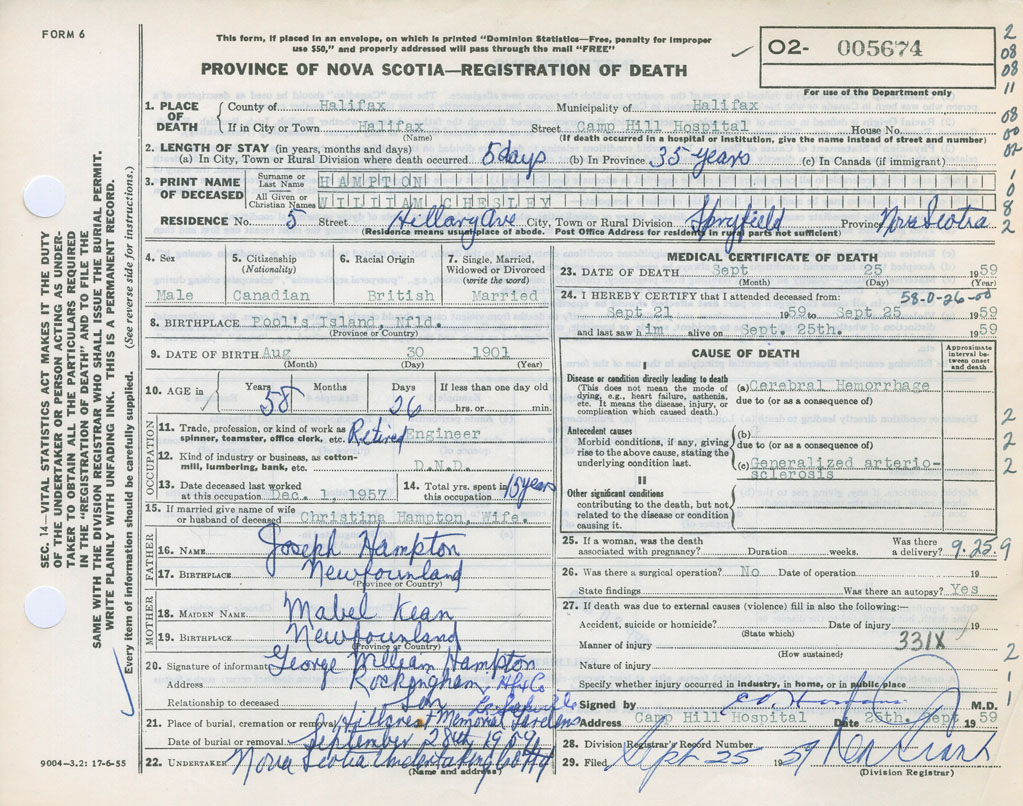 FORM 6
This form, if placed in an envelope, on which is printed "Dominion Statistics—Free, penalty for improper
use $50," and properly addressed will pass through the mail "FREE"
PROVINCE OF NOVA SCOTIA—REGISTRATION OF DEATH
02- 005674
For use of the Department only
1. PLACE OF DEATH
County of Halifax Municipality of Halifax
If in City or Town Halifax Street Camp Hill Hospital House No.
(Name) (If death occurred in a hospital or institution, give the name instead of street and number)
2. LENGTH OF STAY (in years, months and days)
(a) In City, Town or Rural Division where death occurred 5 days (b) In Province 35 years (c) In Canada (if immigrant)
3. PRINT NAME OF DECEASED
Surname or Last Name HAMPTON
All Given or Christian Names WILLIAM CHESLEY
RESIDENCE No. 5 Street Hillary Ave City, Town or Rural Division Spryfield Province Nova Scotia
(Residence means usual place of abode. Post Office Address for residents in rural parts not sufficient)
4. Sex Male
5. Citizenship (Nationality) Canadian
6. Racial Origin British
7. Single, Married, Widowed or Divorced (write the word) Married
8. BIRTHPLACE Pool's Island, Nfld.
(Province or Country)
9. DATE OF BIRTH Aug 30 1901
(Month) (Day) (Year)
10. AGE in Years 58 Months Days 26 If less than one day old
hrs. or min.
OCCUPATION
11. Trade, profession, or kind of work as spinner, teamster, office clerk, etc. Retired Engineer
12. Kind of industry or business, as cotton-mill, lumbering, bank, etc. D.N.D.
13. Date deceased last worked at this occupation Dec. 1, 1957
14. Total yrs. spent in this occupation 15 years
15. If married give name of wife or husband of deceased Christina Hampton, Wife.
FATHER
16. NAME Joseph Hampton
17. BIRTHPLACE Newfounland
(Province or Country)
MOTHER
18. MAIDEN NAME Mabel Kean
19. BIRTHPLACE Newfounland
(Province or Country)
20. Signature of informant George William Hampton
Address Rockingham, Hfx Co
Relationship to deceased Son
21. Place of burial, cremation or removal Hillcrest Memorial Gardens
Date of burial or removal September 28th 1959
22. UNDERTAKER Nova Scotia Undertaking Co
(Name and address)
9004-3.2: 17-6-55
MEDICAL CERTIFICATE OF DEATH
23. DATE OF DEATH Sept 25 1959
(Month) (Day) (Year)
24. I HEREBY CERTIFY that I attended deceased from: 58-0-26-00
Sept 21 1959 to Sept 25 1959
and last saw him alive on Sept. 25th. 1959
CAUSE OF DEATH
Approximate interval between onset and death
Disease or condition directly leading to death
(This does not mean the mode of dying, e.g., heart failure, asthenia, etc. It means the disease, injury, or complication which caused death.)
(a) Cerebral Hemorrhage
due to (or as a consequence of)
Antecedent causes
Morbid conditions, if any, giving rise to the above cause, stating the underlying condition last.
(b)
due to (or as a consequence of)
(c) Generalized arterio-
sclerosis
II
Other significant conditions
contributing to the death, but not related to the disease or condition causing it.
25. If a woman, was the death associated with pregnancy? Duration weeks. Was there a delivery? 9.25.9
26. Was there a surgical operation? No Date of operation 19
State findings Was there an autopsy? Yes
27. If death was due to external causes (violence) fill in also the following:—
Accident, suicide or homicide? Date of injury 19
(State which)
Manner of injury 331X
(How sustained)
Nature of injury
Specify whether injury occurred in industry, in home, or in public place
Signed by M.D.
Address Camp Hill Hospital Date 25th. Sept 1959
28. Division Registrar's Record Number
29. Filed Sept 25 1959
(Division Registrar)
SEC. 14—VITAL STATISTICS ACT MAKES IT THE DUTY
OF THE UNDERTAKER OR PERSON ACTING AS UNDER-
TAKER TO OBTAIN ALL THE PARTICULARS REQUIRED
IN THE "REGISTRATION OF DEATH" AND TO FILE THIS
SAME WITH THE DIVISION REGISTRAR WHO SHALL ISSUE THE BURIAL PERMIT.
WRITE PLAINLY WITH UNFADING INK. THIS IS A PERMANENT RECORD.
Every item of information should be carefully supplied. (See reverse side for instructions.)
2
08
08
11
08
00
02
1
0
8
2
2
2
2
2
1
1